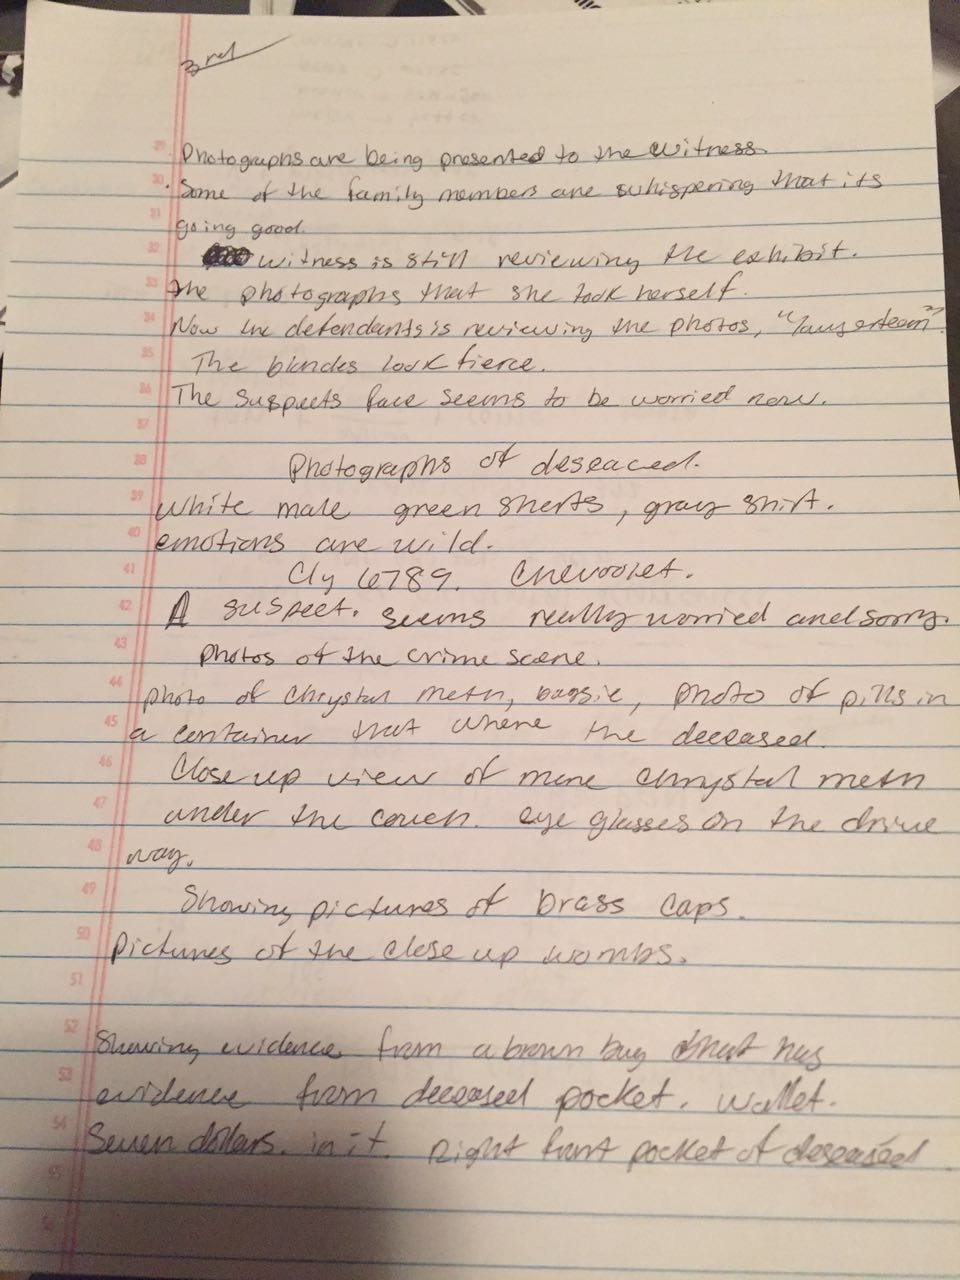 3rd
29 Photographs are being presented to the witness.
30 Some of the family members are whispering that its
31 going good.
32 witness is still reviewing the exhibit.
33 the photographs that she took herself.
34 Now the defendants is reviewing the photos,
35 The blondes look fierce.
36 The suspects face seems to be worried now.
37
38 Photographs of deseaced.
39 white male green sherts, gray shirt.
40 emotions are wild.
41 Cly 6789. Chevrolet.
42 A suspect. seems really worried and sorry.
43 photos of the crime scene.
44 photo of Chrystal meth, baggie, photo of pills in
45 a container that where the deceased.
46 Close up view of more Chrystal meth
47 under the couch. eye glasses on the drive
48 way.
49 Showing pictures of brass caps.
50 Pictures of the close up wombs.
51
52 Showing evidence from a brown bag that has
53 evidence from deceased pocket. wallet.
54 Seven dollars. in it. Right front pocket of deseased
55
56